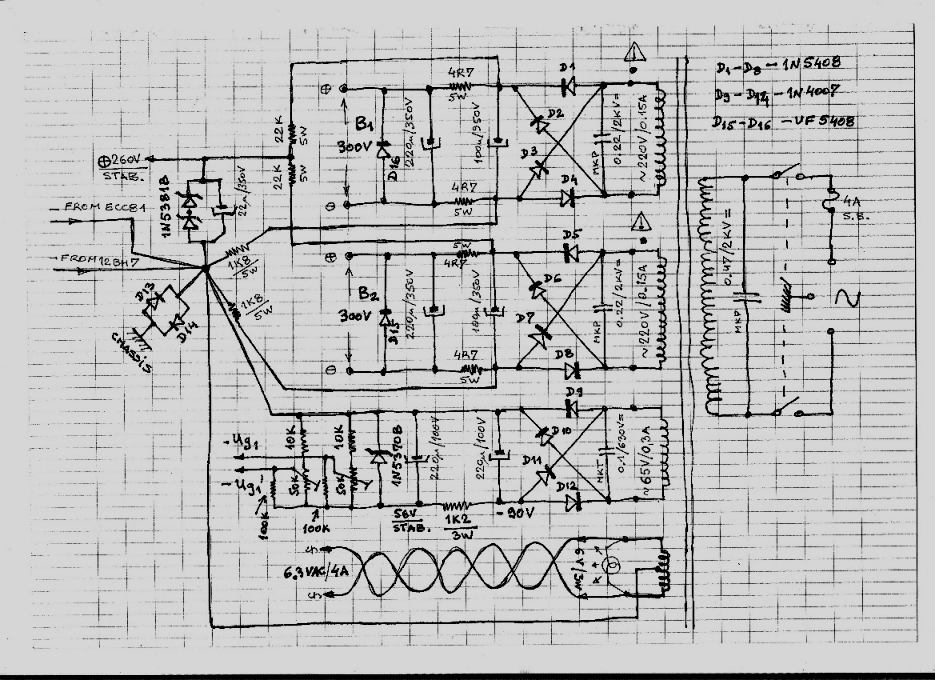 D1-D8-1N5408
D9-D12-1N4007
D15-D16-UF5408
4R7
5W
D1
⊕
B1
300V
D16
220µ/350V
100µ/350V
D2
D3
MKP
0.22/2KV=
~220V/0.15A
22K
5W
22K
5W
⊕260V
STAB.
1N5381B
22µ/350V
⊖
4R7
5W
D4
FROM ECC81
FROM 12BH7
1K8
5W
1K8
5W
D13
D14
CHASSIS
5W
4R7
D5
⊕
B2
300V
D15
220µ/350V
100µ/350V
D6
D7
MKP
0.22/2KV=
~220V/0.15A
⊖
4R7
5W
D8
0.47/2KV=
MKP
4A
S.B.
~
-Ug1
-Ug1'
10K
10K
50K
50K
100K
100K
1N5370B
220µ/100V
220µ/100V
D9
D10
D11
D12
MKT
0.1/630V=
~65V/0,3A
56V
STAB.
1K2
3W
-90V
6.3VAC/4A
6V/3W